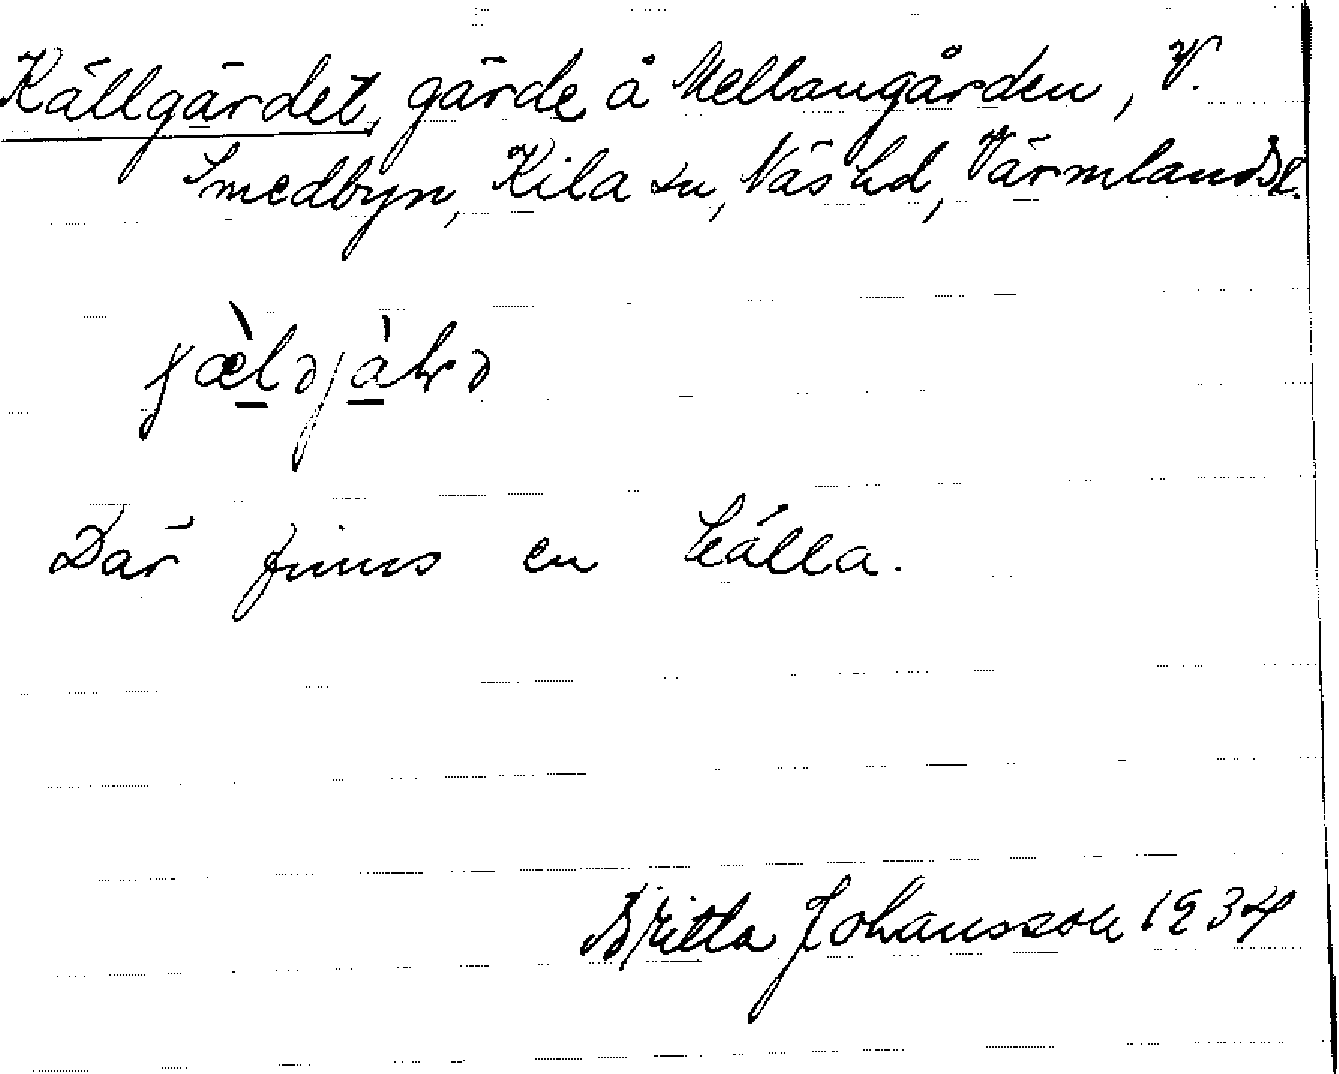 Källgärdet, gärde å Mellangården, V.
Smedbyn, Kila sn, Näs hd, Värmlands l.
Där finns en källa.
Britta Johansson 1934